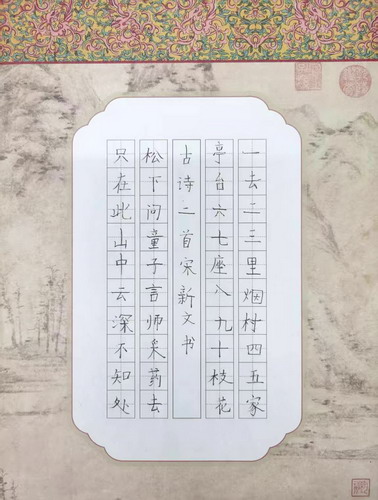 一去二三里烟村四五家
亭台六七座八九十枝花
古诗二首宋新文书
松下问童子言师采药去
只在此山中云深不知处